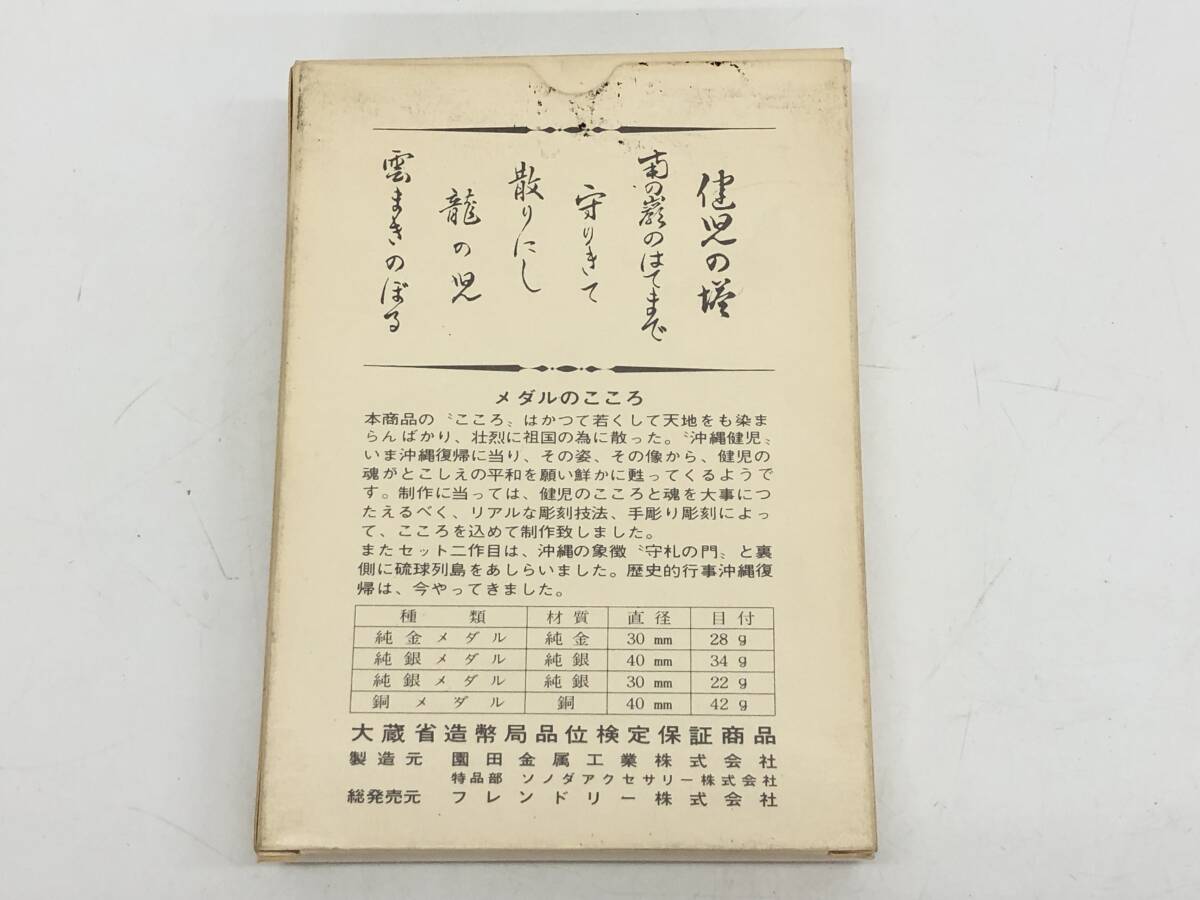 健児の塔
南の巌のはてまで
守りきて
散りにし
龍の児
雲まきのぼる
メダルのこころ
本商品の〝こころ〟はかつて若くして天地をも染ま
らんばかり、壮烈に祖国の為に散った。〝沖縄健児〟
いま沖縄復帰に当り、その姿、その像から、健児の
魂がとこしえの平和を願い鮮かに甦ってくるようで
す。制作に当っては、健児のこころと魂を大事につ
たえるべく、リアルな彫刻技法、手彫り彫刻によっ
て、こころを込めて制作致しました。
またセット二作目は、沖縄の象徴〝守札の門〟と裏
側に硫球列島をあしらいました。歴史的行事沖縄復
帰は、今やってきました。
種類 材質 直径 目付
純金メダル 純金 30㎜ 28g
純銀メダル 純銀 40㎜ 34g
純銀メダル 純銀 30㎜ 22g
銅メダル 銅 40㎜ 42g
大蔵省造幣局品位検定保証商品
製造元 園田金属工業株式会社
特品部 ソノダアクセサリー株式会社
総発売元 フレンドリー株式会社